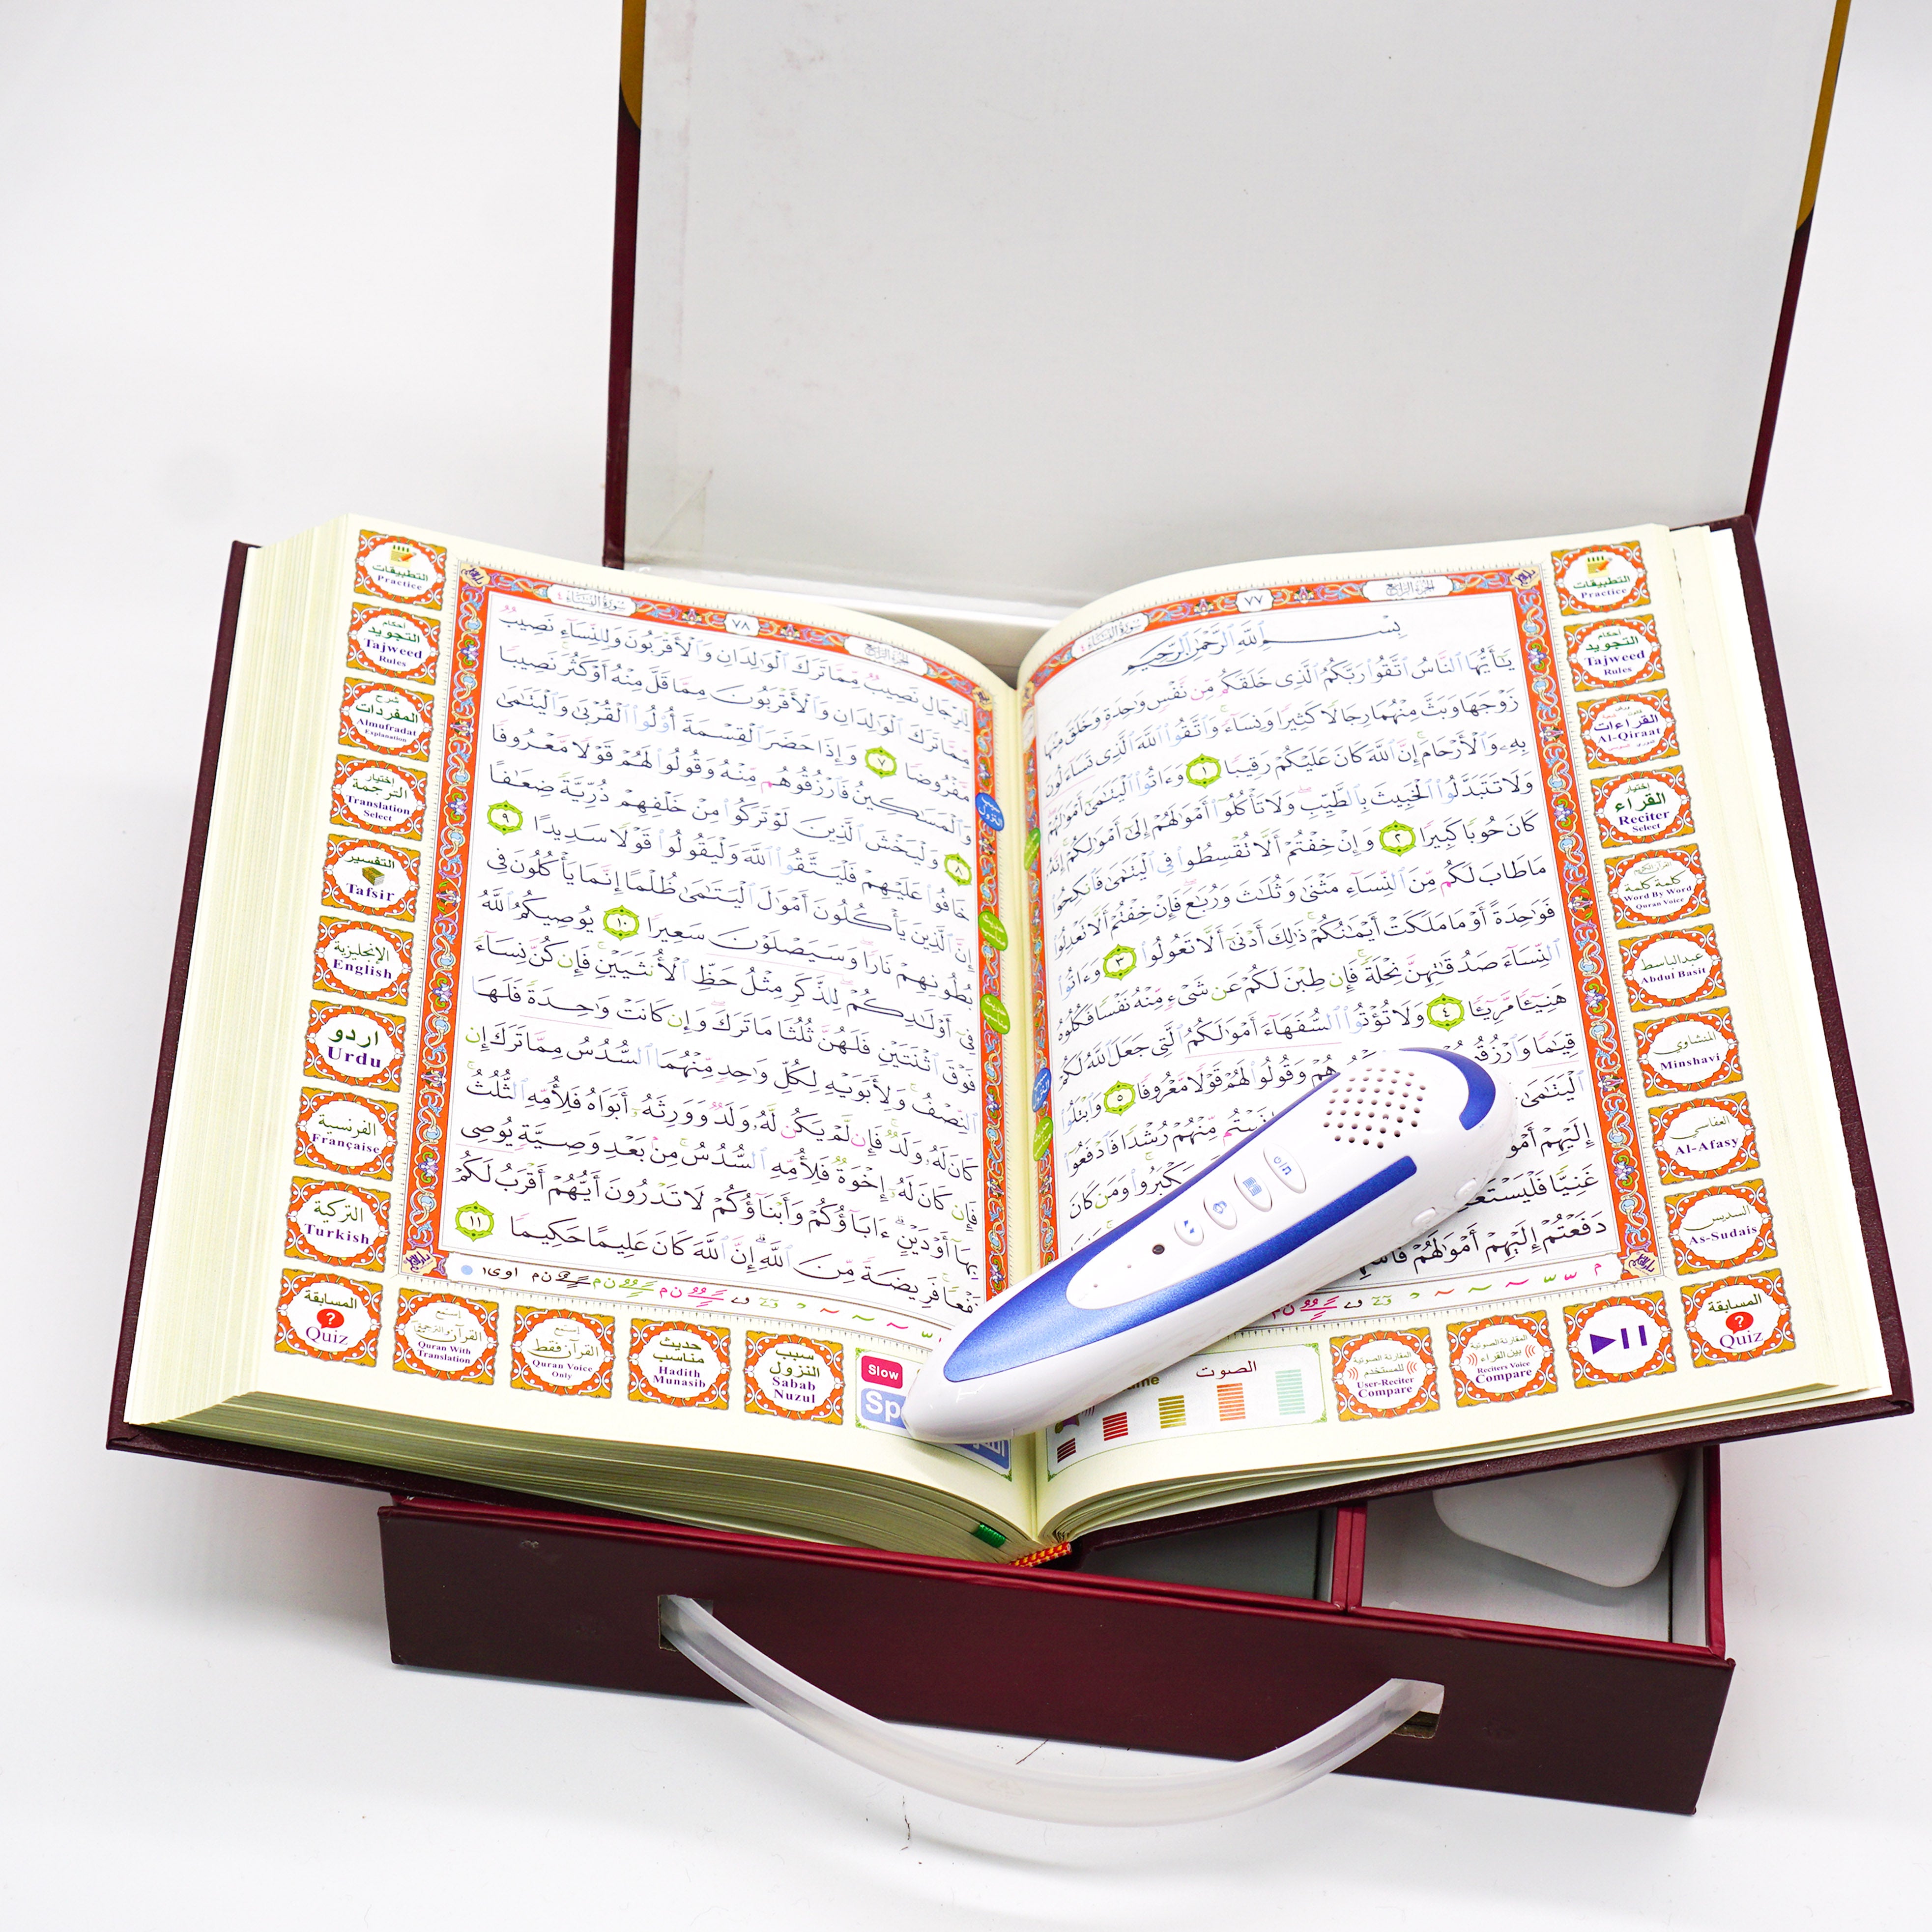 سورة النساء ٤
٧٧
الجزء الرابع
بِسْمِ اللَّهِ الرَّحْمَٰنِ الرَّحِيمِ
يَٰٓأَيُّهَا ٱلنَّاسُ ٱتَّقُوا۟ رَبَّكُمُ ٱلَّذِى خَلَقَكُم مِّن نَّفْسٍ وَٰحِدَةٍ وَخَلَقَ مِنْهَا
زَوْجَهَا وَبَثَّ مِنْهُمَا رِجَالًا كَثِيرًا وَنِسَآءً ۚ وَٱتَّقُوا۟ ٱللَّهَ ٱلَّذِى تَسَآءَلُونَ
بِهِۦ وَٱلْأَرْحَامَ ۚ إِنَّ ٱللَّهَ كَانَ عَلَيْكُمْ رَقِيبًا ١ وَءَاتُوا۟ ٱلْيَتَٰمَىٰٓ أَمْوَٰلَهُمْ
وَلَا تَتَبَدَّلُوا۟ ٱلْخَبِيثَ بِٱلطَّيِّبِ ۖ وَلَا تَأْكُلُوٓا۟ أَمْوَٰلَهُمْ إِلَىٰٓ أَمْوَٰلِكُمْ ۚ إِنَّهُۥ
كَانَ حُوبًا كَبِيرًا ٢ وَإِنْ خِفْتُمْ أَلَّا تُقْسِطُوا۟ فِى ٱلْيَتَٰمَىٰ فَٱنكِحُوا۟
مَا طَابَ لَكُم مِّنَ ٱلنِّسَآءِ مَثْنَىٰ وَثُلَٰثَ وَرُبَٰعَ ۖ فَإِنْ خِفْتُمْ أَلَّا تَعْدِلُوا۟
فَوَٰحِدَةً أَوْ مَا مَلَكَتْ أَيْمَٰنُكُمْ ۚ ذَٰلِكَ أَدْنَىٰٓ أَلَّا تَعُولُوا۟ ٣ وَءَاتُوا۟
ٱلنِّسَآءَ صَدُقَٰتِهِنَّ نِحْلَةً ۚ فَإِن طِبْنَ لَكُمْ عَن شَىْءٍ مِّنْهُ نَفْسًا فَكُلُوهُ
هَنِيٓـًٔا مَّرِيٓـًٔا ٤ وَلَا تُؤْتُوا۟ ٱلسُّفَهَآءَ أَمْوَٰلَكُمُ ٱلَّتِى جَعَلَ ٱللَّهُ لَكُمْ
قِيَٰمًا وَٱرْزُقُو هُمْ وَقُولُوا۟ لَهُمْ قَوْلًا مَّعْرُوفًا ٥ وَٱبْتَلُوا۟
ٱلْيَتَٰمَىٰ مِّنْهُمْ رُشْدًا فَٱدْفَعُوٓا۟
إِلَيْهِمْ يَكْبَرُوا۟ ۚ وَمَن كَانَ
غَنِيًّا فَلْيَسْتَعْ
دَفَعْتُمْ إِلَيْهِمْ أَمْوَٰلَهُمْ
التطبيقات
Practice
أحكام
التجويد
Tajweed
Rules
القراءات
Al-Qiraat
إختيار
القراء
Reciter
Select
كلمة كلمة
Word By Word
Quran Voice
عبدالباسط
Abdul Basit
المنشاوى
Minshavi
العفاسي
Al-Afasy
السديس
As-Sudais
المسابقة
?
Quiz
المقارنة الصوتية
بين القراء
Reciters Voice
Compare
المقارنة الصوتية
للمستخدم
User-Reciter
Compare
الصوت
سورة النساء ٤
٧٨
الجزء الرابع
لِّلرِّجَالِ نَصِيبٌ مِّمَّا تَرَكَ ٱلْوَٰلِدَانِ وَٱلْأَقْرَبُونَ وَلِلنِّسَآءِ نَصِيبٌ
مِّمَّا تَرَكَ ٱلْوَٰلِدَانِ وَٱلْأَقْرَبُونَ مِمَّا قَلَّ مِنْهُ أَوْ كَثُرَ ۚ نَصِيبًا
مَّفْرُوضًا ٧ وَإِذَا حَضَرَ ٱلْقِسْمَةَ أُو۟لُوا۟ ٱلْقُرْبَىٰ وَٱلْيَتَٰمَىٰ
وَٱلْمَسَٰكِينُ فَٱرْزُقُوهُم مِّنْهُ وَقُولُوا۟ لَهُمْ قَوْلًا مَّعْرُوفًا
٨ وَلْيَخْشَ ٱلَّذِينَ لَوْ تَرَكُوا۟ مِنْ خَلْفِهِمْ ذُرِّيَّةً ضِعَٰفًا
خَافُوا۟ عَلَيْهِمْ فَلْيَتَّقُوا۟ ٱللَّهَ وَلْيَقُولُوا۟ قَوْلًا سَدِيدًا ٩
إِنَّ ٱلَّذِينَ يَأْكُلُونَ أَمْوَٰلَ ٱلْيَتَٰمَىٰ ظُلْمًا إِنَّمَا يَأْكُلُونَ فِى
بُطُونِهِمْ نَارًا ۖ وَسَيَصْلَوْنَ سَعِيرًا ١٠ يُوصِيكُمُ ٱللَّهُ
فِىٓ أَوْلَٰدِكُمْ ۖ لِلذَّكَرِ مِثْلُ حَظِّ ٱلْأُنثَيَيْنِ ۚ فَإِن كُنَّ نِسَآءً
فَوْقَ ٱثْنَتَيْنِ فَلَهُنَّ ثُلُثَا مَا تَرَكَ ۖ وَإِن كَانَتْ وَٰحِدَةً فَلَهَا
ٱلنِّصْفُ ۚ وَلِأَبَوَيْهِ لِكُلِّ وَٰحِدٍ مِّنْهُمَا ٱلسُّدُسُ مِمَّا تَرَكَ إِن
كَانَ لَهُۥ وَلَدٌ ۚ فَإِن لَّمْ يَكُن لَّهُۥ وَلَدٌ وَوَرِثَهُۥٓ أَبَوَاهُ فَلِأُمِّهِ ٱلثُّلُثُ ۚ
فَإِن كَانَ لَهُۥٓ إِخْوَةٌ فَلِأُمِّهِ ٱلسُّدُسُ ۚ مِنۢ بَعْدِ وَصِيَّةٍ يُوصِى
بِهَآ أَوْ دَيْنٍ ۗ ءَابَآؤُكُمْ وَأَبْنَآؤُكُمْ لَا تَدْرُونَ أَيُّهُمْ أَقْرَبُ لَكُمْ
نَفْعًا ۚ فَرِيضَةً مِّنَ ٱللَّهِ ۗ إِنَّ ٱللَّهَ كَانَ عَلِيمًا حَكِيمًا ١١
التطبيقات
Practice
أحكام
التجويد
Tajweed
Rules
شرح
المفردات
Almufradat
Explanation
إختيار
الترجمة
Translation
Select
التفسير
Tafsir
الإنجليزية
English
اردو
Urdu
الفرنسية
Française
التركية
Turkish
المسابقة
?
Quiz
إستمع
القرآن والترجمة
Quran With
Translation
إستمع
القرآن فقط
Quran Voice
Only
حديث
مناسب
Hadith
Munasib
سبب
النزول
Sabab
Nuzul
Slow
Sp